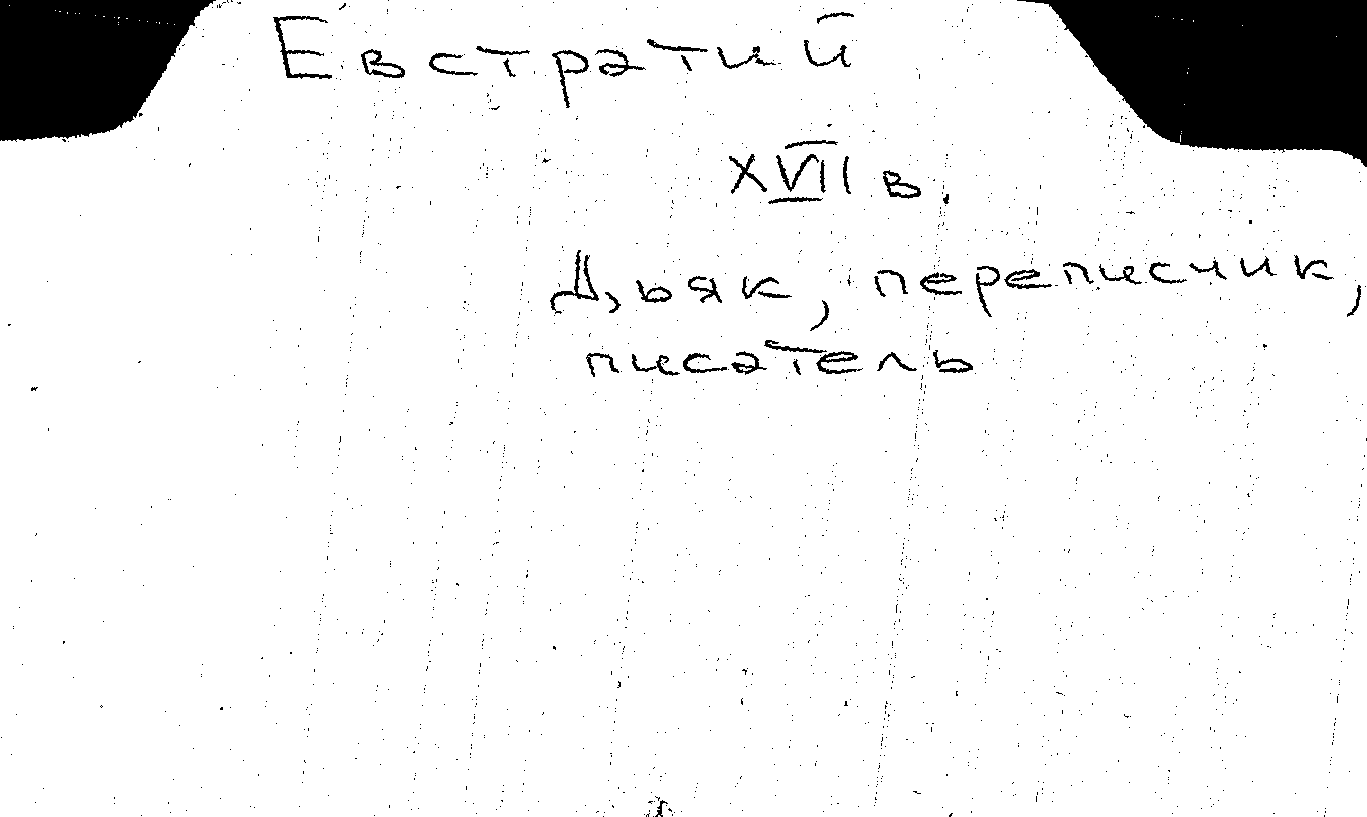 Евстратий
XVII в.
Дьяк, переписчик,
писатель